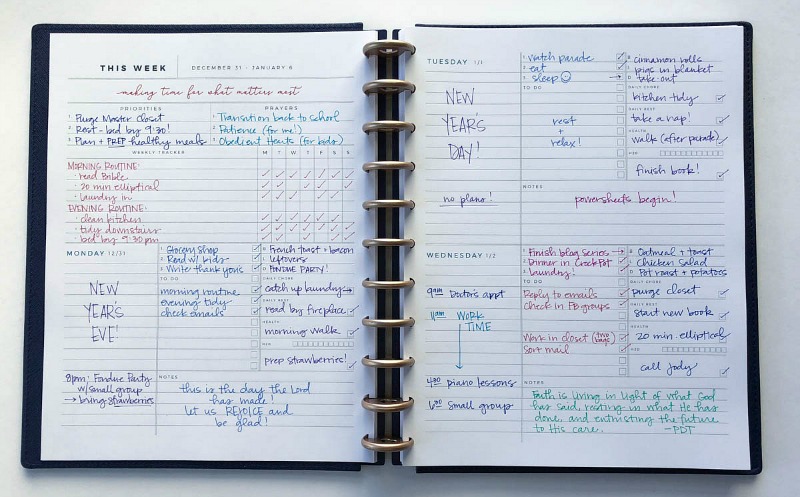 THIS WEEK
DECEMBER 31 - JANUARY 6
making time for what matters most
PRIORITIES
1 Purge Master closet
2 Rest - bed by 9:30!
3 Plan + PREP healthy meals
PRAYERS
1 Transition back to school
2 Patience (for me!)
3 Obedient Hearts (for kids)
WEEKLY TRACKER
M T W T F S S
MORNING ROUTINE:
· read Bible
· 20 min elliptical
· laundry in
EVENING ROUTINE:
· clean kitchen
· tidy downstairs
· bed by 9:30pm
MONDAY 12/31
NEW
YEAR'S
EVE!
8pm: Fondue Party
w/small group
→ bring strawberries
1 Grocery shop
2 Read w/ kids
3 Write thank yous
TO DO
morning routine
evening tidy
check emails
B French toast + bacon
L leftovers
D FONDUE PARTY!
DAILY CHORE
catch up laundry
DAILY BEST
read by fireplace
HEALTH
morning walk
H2O
prep strawberries!
NOTES
this is the day the Lord
has made!
let us REJOICE and
be glad!
TUESDAY 1/1
NEW
YEAR'S
DAY!
no piano!
1 watch parade
2 eat
3 sleep
TO DO
rest
+
relax!
B cinnamon rolls
L pigs in blanket
D take-out
DAILY CHORE
kitchen tidy
DAILY BEST
take a nap!
HEALTH
walk (after parade)
H2O
finish book!
NOTES
powersheets begin!
WEDNESDAY 1/2
9am Doctors appt
11am WORK
TIME
4:00 piano lessons
6:30 Small group
1 Finish blog series →
2 Dinner in CrockPot
3 Laundry!
TO DO
Reply to emails
Check in FB groups
Work in closet (two bags)
Sort mail
B Oatmeal + toast
L Chicken Salad
D Pot roast + potatoes
DAILY CHORE
purge closet
DAILY BEST
start new book
HEALTH
20 min elliptical
H2O
call Jody
NOTES
Faith is living in light of what God
has said, resting in what He has
done, and entrusting the future
to His care. -PDT